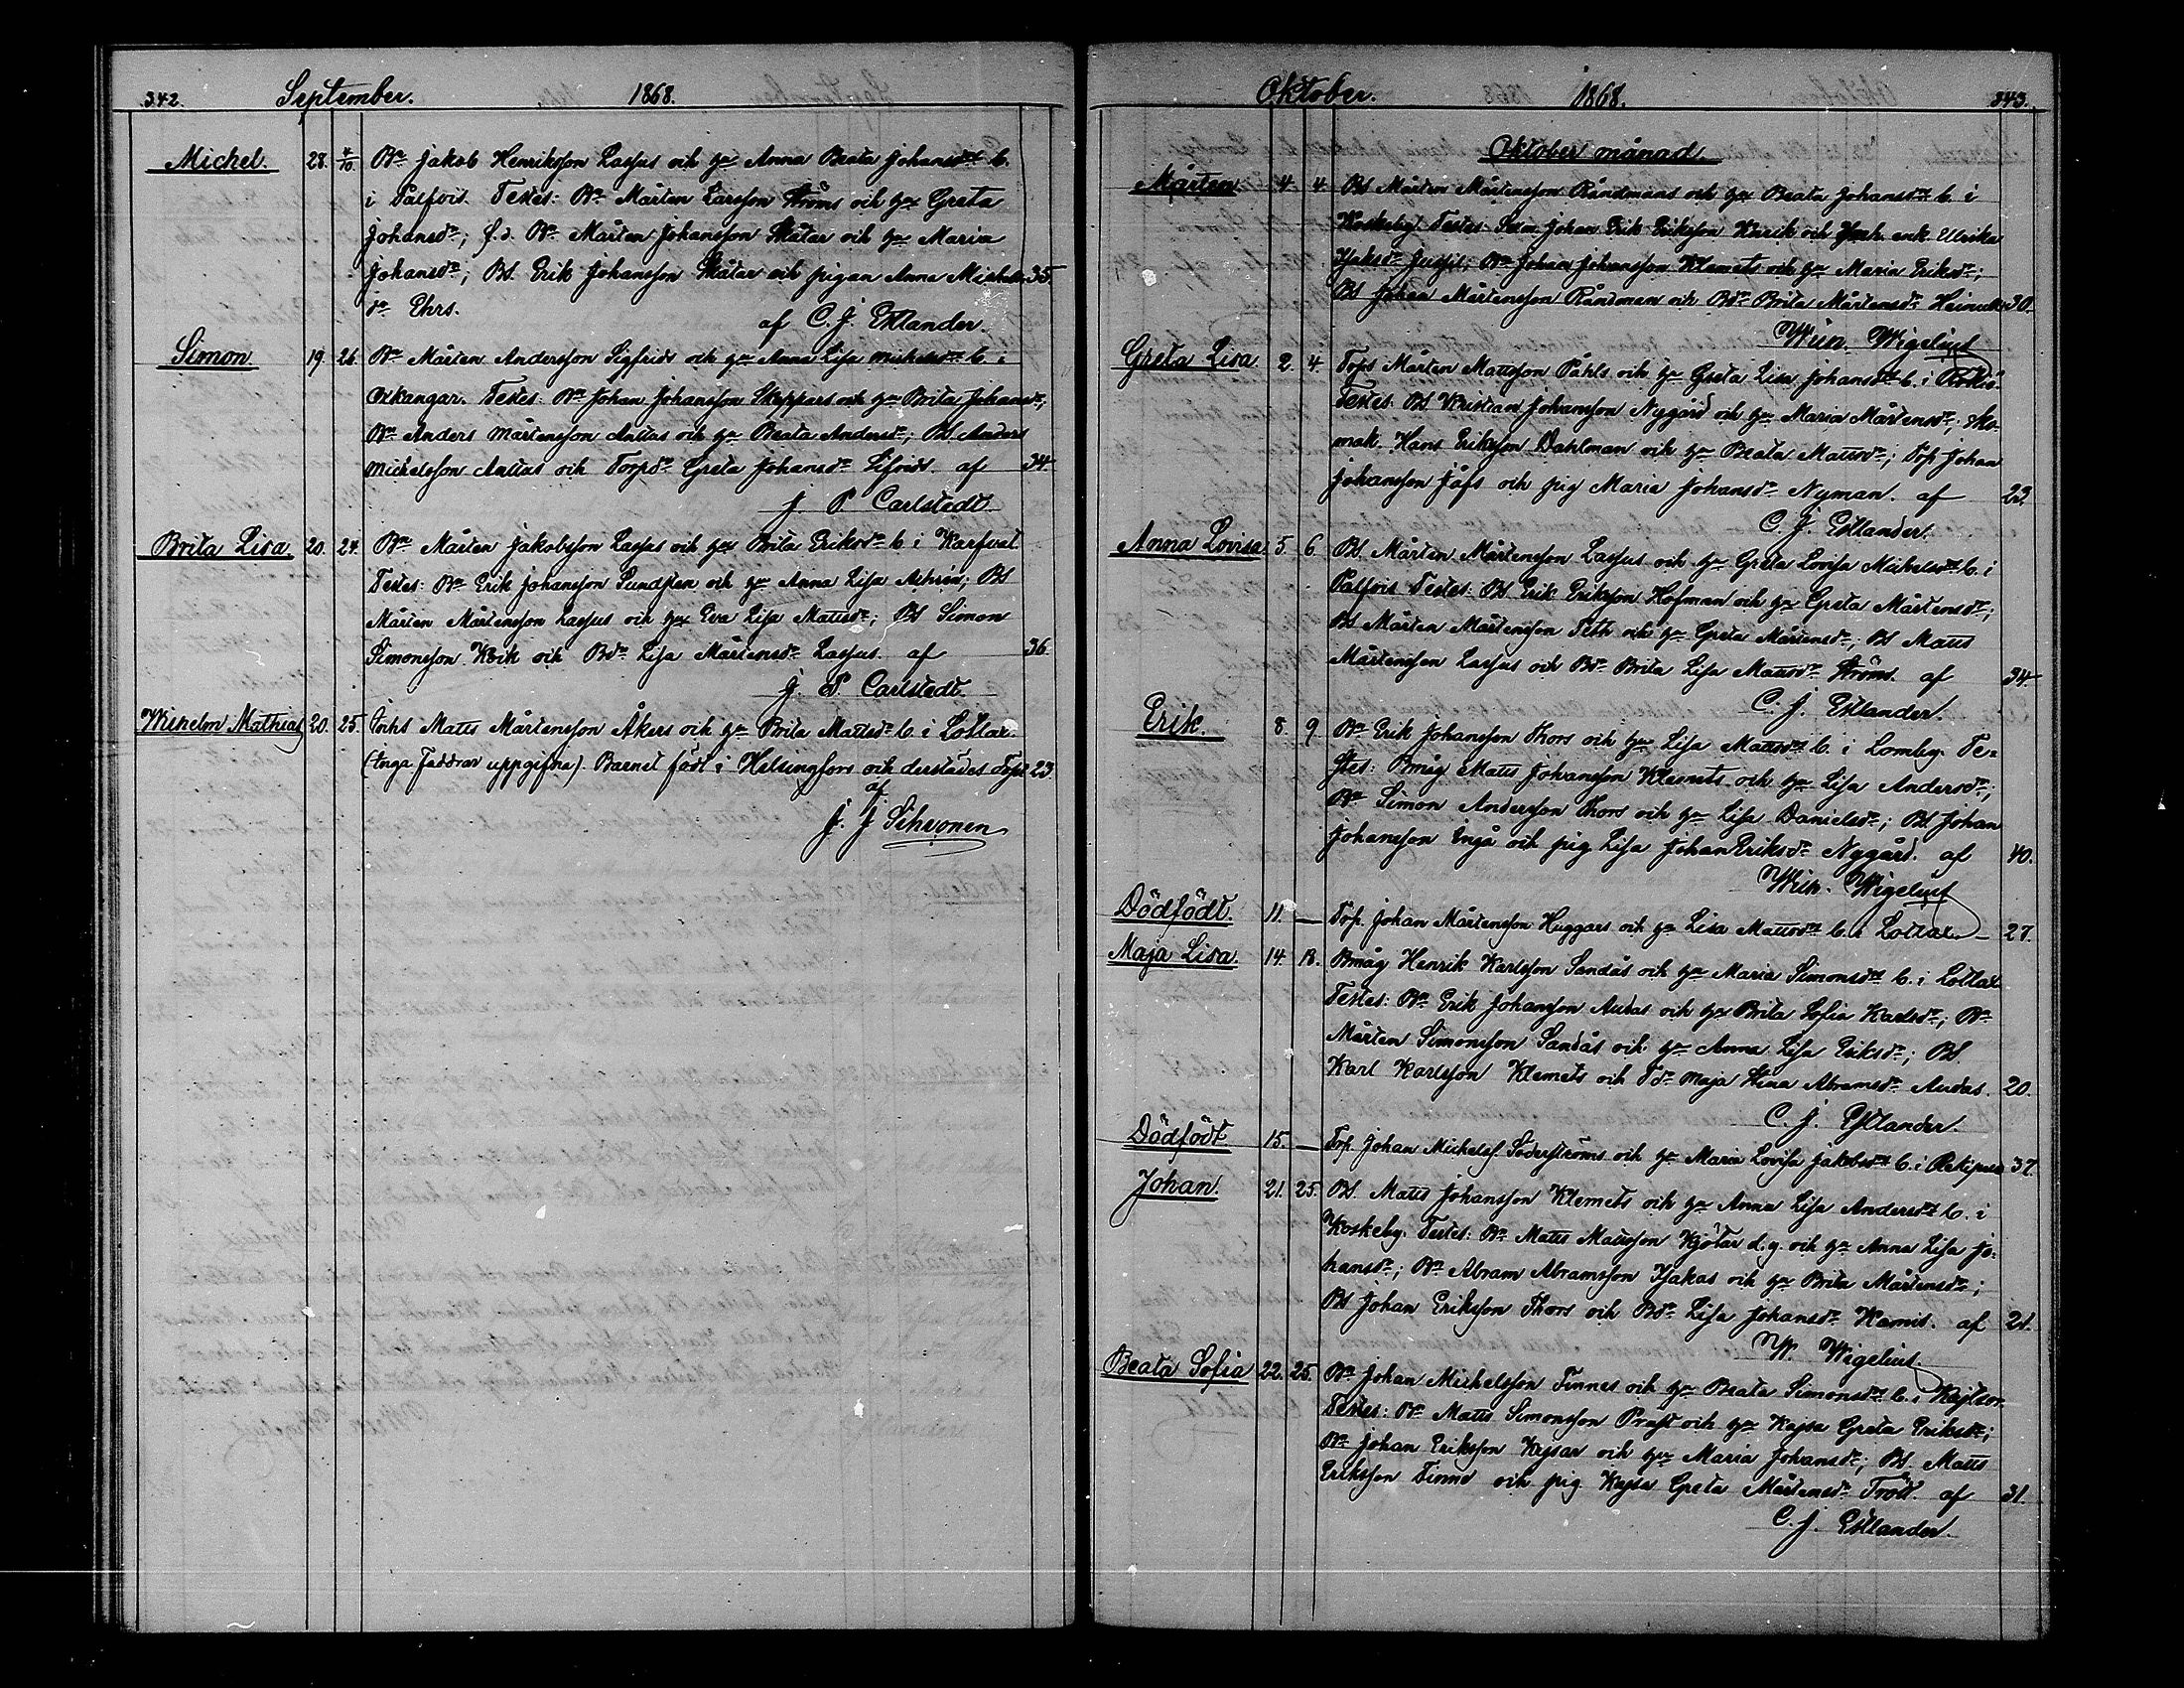 342. September. 1868.
Michel. 28. 4/10. Bn Jakob Henriksson Lassus och hu Anna Beata Johansdr b.
i Palfvis. Testes: Bn Mårten Larsson Ströms och hu Greta
Johansdr; f.d. Bn Mårten Johansson Skatar och hu Maria
Johansdr; BS. Erik Johansson Skatar och pigan Anna Michels- 35.
dr Ehrs. af C. J. Estlander.
Simon. 19. 26. Bn Mårten Andersson Sigfrids och hu Anna Lisa Michelsdr b. i
Oxkangar. Testes. Bn Johan Johansson Skeppars och hu Brita Johansdr;
Bn Anders Mårtensson Anttas och hu Beata Andersdr; BS Anders
Michelsson Anttas och Torpdr Greta Johansdr Sifrids. af 34
J. P. Carlstedt
Brita Lisa 20. 24. Bn Mårten Jakobsson Lassus och hu Brita Eriksdr b. i Karfvat
Testes: Bn Erik Johansson Sundsten och hu Anna Lisa; BS
Mårten Mårtensson Lassus och hu Eva Lisa Mattsdr; BS Simon
Simonsson Kock och Bdr Lisa Mårtensdr Lassus. af 36.
J. P. Carlstedt.
Wilhelm Mathias 20. 25. Inhs Matts Mårtensson Åkers och hu Brita Mattsdr b. i Lottax.
(Inga faddrar uppgifna). Barnet födt i Helsingfors och derstädes döpt 23.
af
J. J Sihvonen
Oktober. 1868. 343.
Oktober månad.
Mårten 4. 4. BS Mårten Mårtensson Rándmans och hu Beata Johansdr b. i
Koskeby. Testes: Johan Erik Eriksson och enk. Ulrika
Bn Johan Johansson Klemets och hu Maria Eriksdr;
BS Johan Mårtensson Råndman och Bdr Brita Mårtensdr 30.
Wilh. Wigelius
Greta Lisa 2. 4. Torp Mårten Mattsson Påhls och hu Greta Lisa Johansdr b. i
Testes. BS Kristian Johansson Nygård och hu Maria Mårtensdr; Sko-
mak. Hans Eriksson Dahlman och hu Beata Mattsdr; Torp Johan
Johansson Jåfs och pig Maria Johansdr Nyman. af 22.
C. J. Estlander.
Anna Lovisa 5. 6. BS. Mårten Mårtensson Lassus och hu Greta Lovisa Michelsdr b. i
Palfvis Testes: BS Erik Eriksson Hofman och hu Greta Mårtensdr;
BS Mårten Mårtensson och hu Greta Mårtensdr; BS Matts
Mårtensson Lassus och Bdr Brita Lisa Mattsdr Ströms. af 34.
C. J. Estlander.
Erik. 8. 9. Bn Erik Johansson Thors och hu Lisa Mattsdr b. i Lomby. Te-
stes: Bmåg Matts Johansson Klemets och hu Lisa Andersdr;
Bn Simon Andersson Thors och hu Lisa Danielsdr; BS. Johan
Johansson Ingå och pig Lisa Johan Eriksdr Nygård. af 40.
Wilh. Wigelius
Dödfödt. 11. — Torp. Johan Mårtensson Huggars och hu Lisa Mattsdr b. i Lottax. — 27.
Maja Lisa. 14. 18. Bmåg Henrik Karlsson Sandås och hu Maria Simonsdr b. i Lottax
Testes: Bn Erik Johansson Audas och hu Brita Sofia Karlsdr; Bn
Mårten Simonsson Sandås och hu Anna Lisa Eriksdr; BS.
Karl Karlsson Klemets och Tdr Maja Stina Abramsdr Audas. 20.
C. J. Estlander
Dödfödt. 15. — Torp. Johan Michelss. Söderströms och hu Maria Lovisa Jakobsdr b. i Rekipeldo 37.
Johan. 21. 25. BS. Matts Johansson Klemets och hu Anna Lisa Andersdr b. i
Koskeby. Testes: Bn Matts Mattsson Kjötar d.y. och hu Anna Lisa Jo-
hansdr; Bn Abram Abramsson Isakas och hu Brita Mårtensdr;
BS Johan Eriksson Thors och Bdr Lisa Johansdr Kamis. af 21.
W. Wigelius.
Beata Sofia 22. 25. Bn Johan Michelsson Finnes och hu Beata Simonsdr b. i Kärklax
Testes: Bn Matts Simonsson Prest och hu Kajsa Greta Eriksdr;
Bn Johan Eriksson Kejsar och hu Maria Johansdr; BS. Matts
Eriksson Finne och pig Kajsa Greta Mårtensdr Tröit. af 31.
C. J. Estlander.